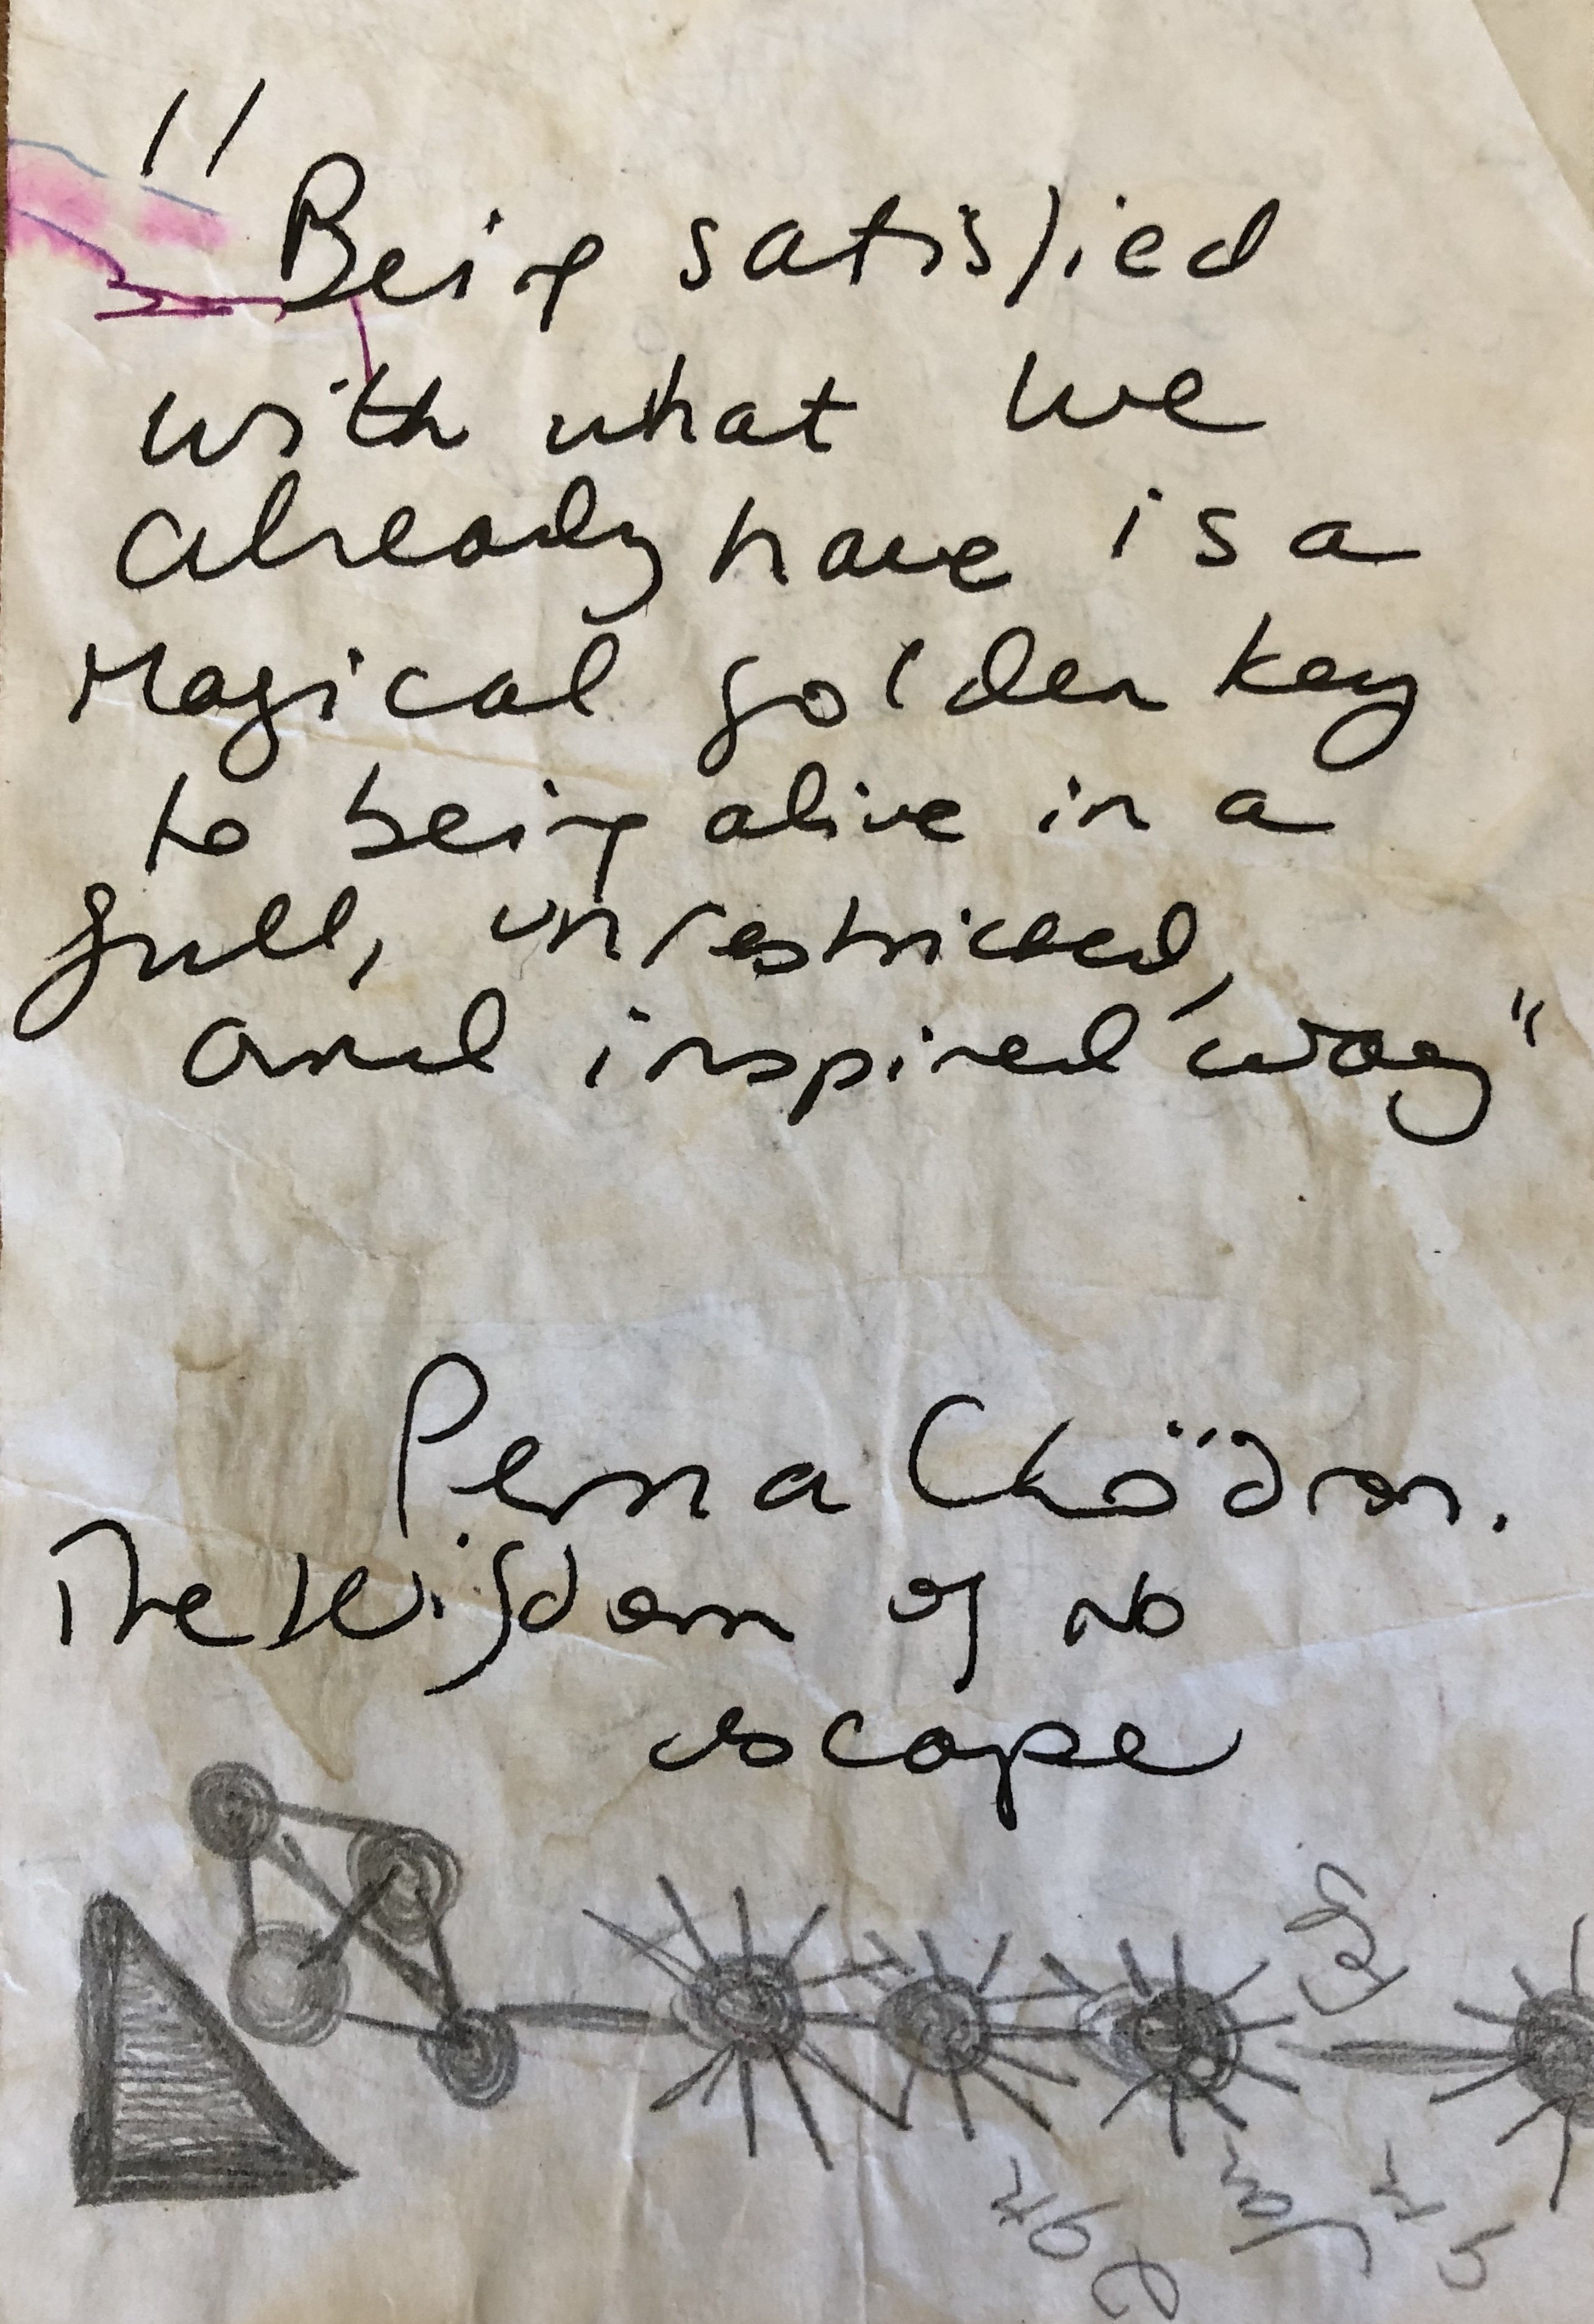 "Being satisfied
with what we
already have is a
Magical golden key
to being alive in a
full, unrestricted,
and inspired way"
Pema Chödron.
The Wisdom of no
escape